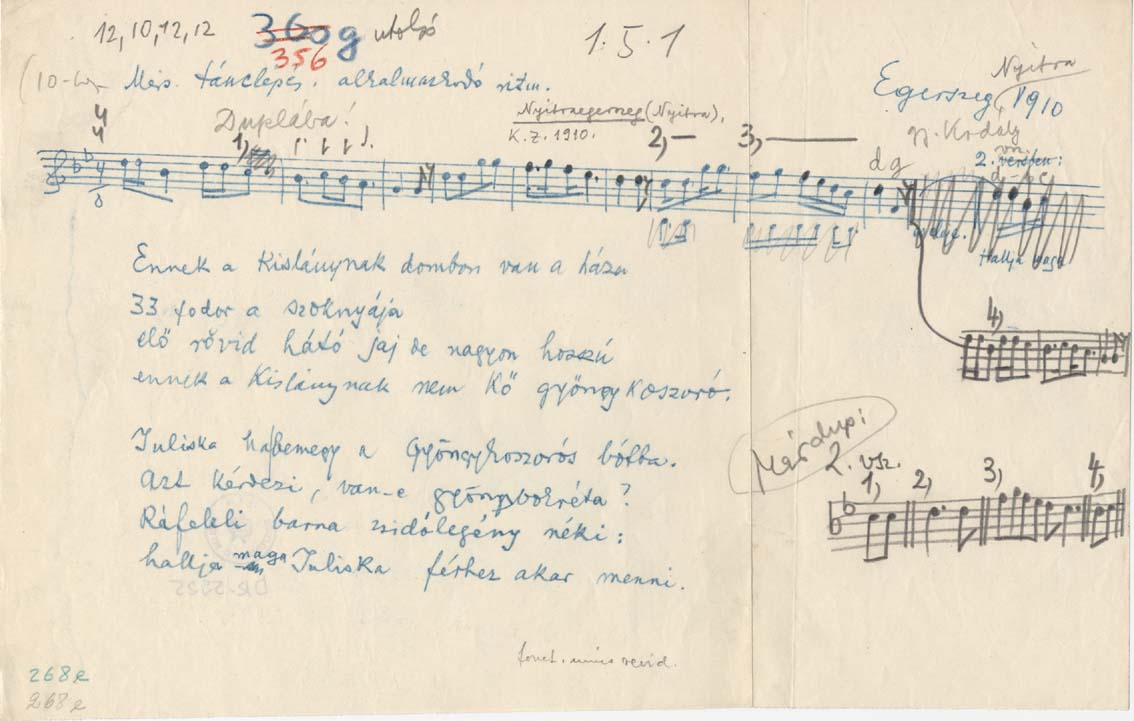 12, 10, 12, 12 360g utolsó
356
1. 5. 1
Nyitra
(10-es Mérs. tánclépés. alkalmazkodó ritm.
Egerszeg, 1910
Duplába!
Nyitraegerszeg (Nyitra),
K. Z. 1910.
gy. Kodály
1, 2, 3,
d g
2. versben:
4
4
Hallja maga
4,
Ennek a Kislánynak dombon van a háza
33 fodor a szoknyája
elő rövid hátó jaj de nagyon hosszú
ennek a Kislánynak nem Kő gyöngykoszoró.
Juliska ha bemegy a Gyöngykoszorós bótba.
Azt kérdezi, van-e gyöngybokréta?
Ráfeleli barna zsidólegény néki:
hallja maga Juliska férhez akar menni.
2. vsz.
1, 2, 3, 4,
fonet. nincs revid.
268e
268e